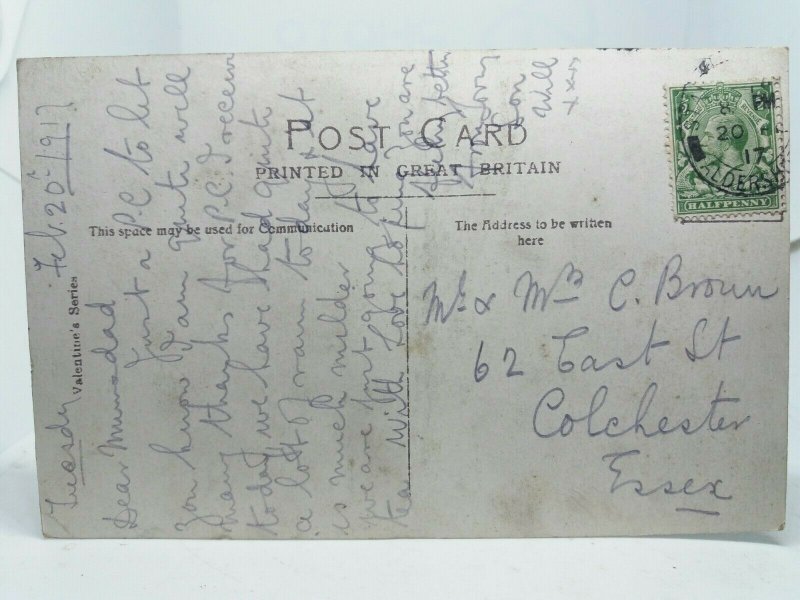 POST CARD
PRINTED IN GREAT BRITAIN
This space may be used for Communication
The Address to be written
here
Valentine's Series
HALFPENNY
ALDERSH
8 PM
20
17
Teusdy Feb. 20th 1917
Dear Mum & dad
Just a P.C to let
You know I am quite well
Many thanks for P.C. I receiv
today we have had quite
a lott of rain to day it
is much milder
we are just going to have
tea with Love hoping You are
better
Your Loving
Son
Will
xxxx
Mr & Mrs C. Brown
62 East St
Colchester
Essex